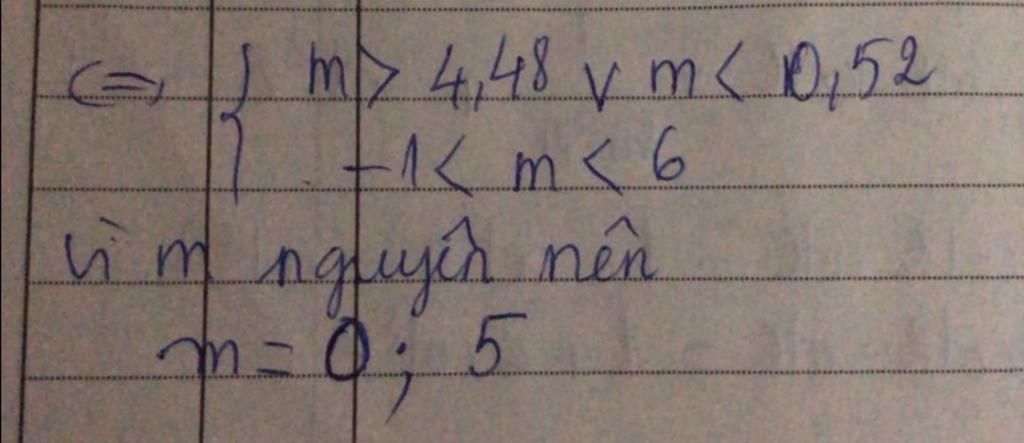 <=> { m > 4,48 v m < 0,52
-1 < m < 6
vì m nguyên nên
m = 0; 5